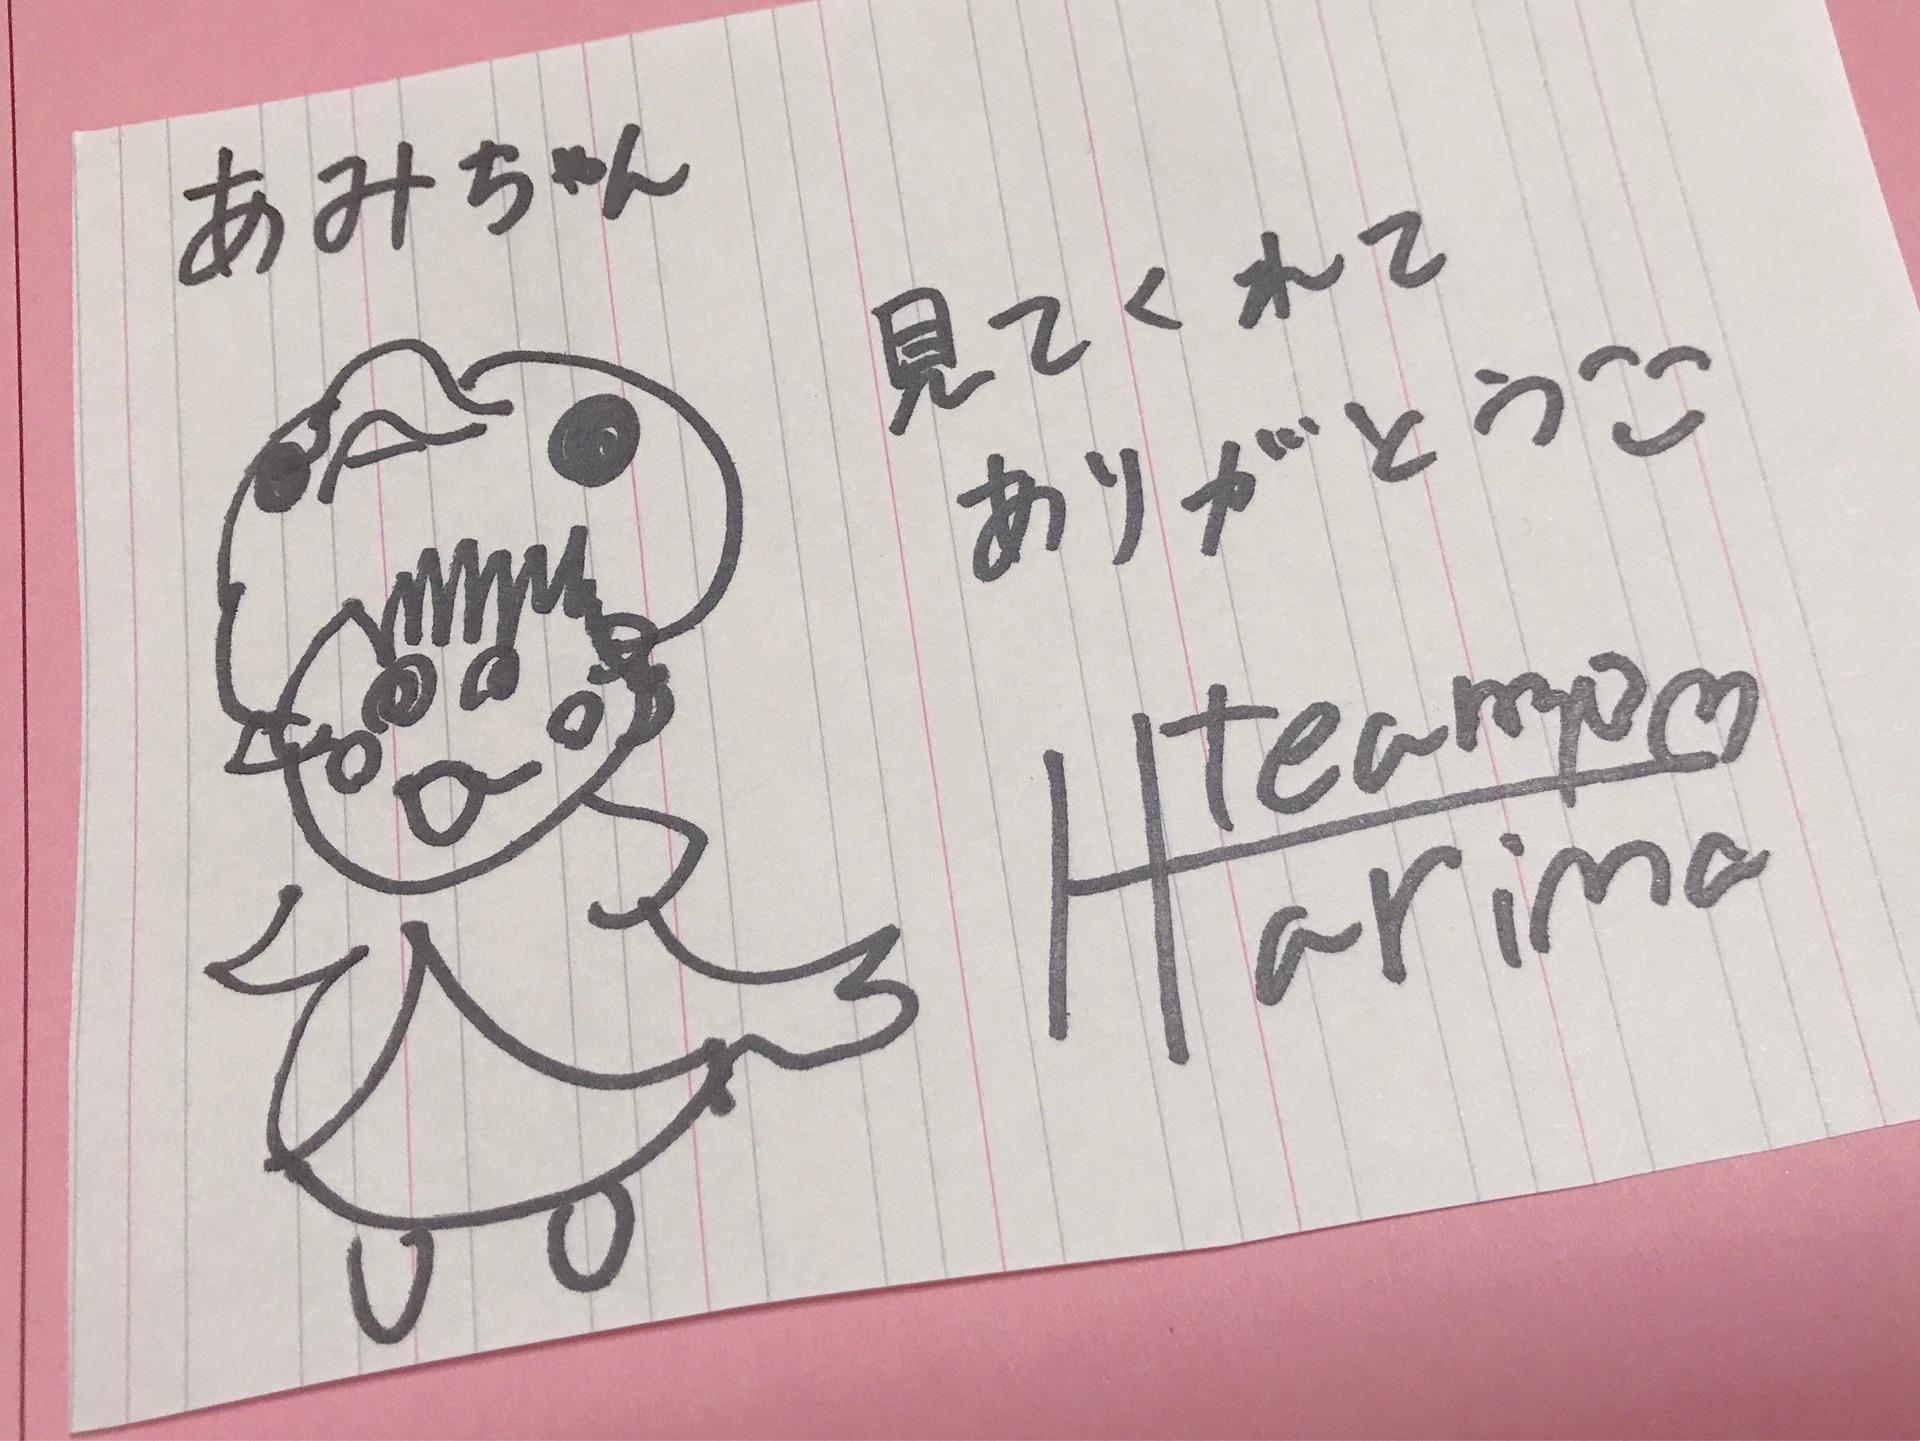 あみちゃん
見てくれて
ありがとう
teampo
Harima